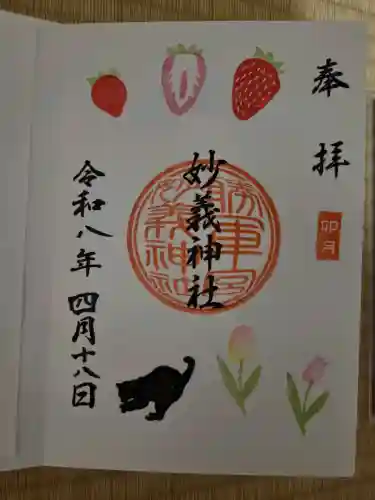 奉拝
卯月
妙義神社
令和八年 四月十八日